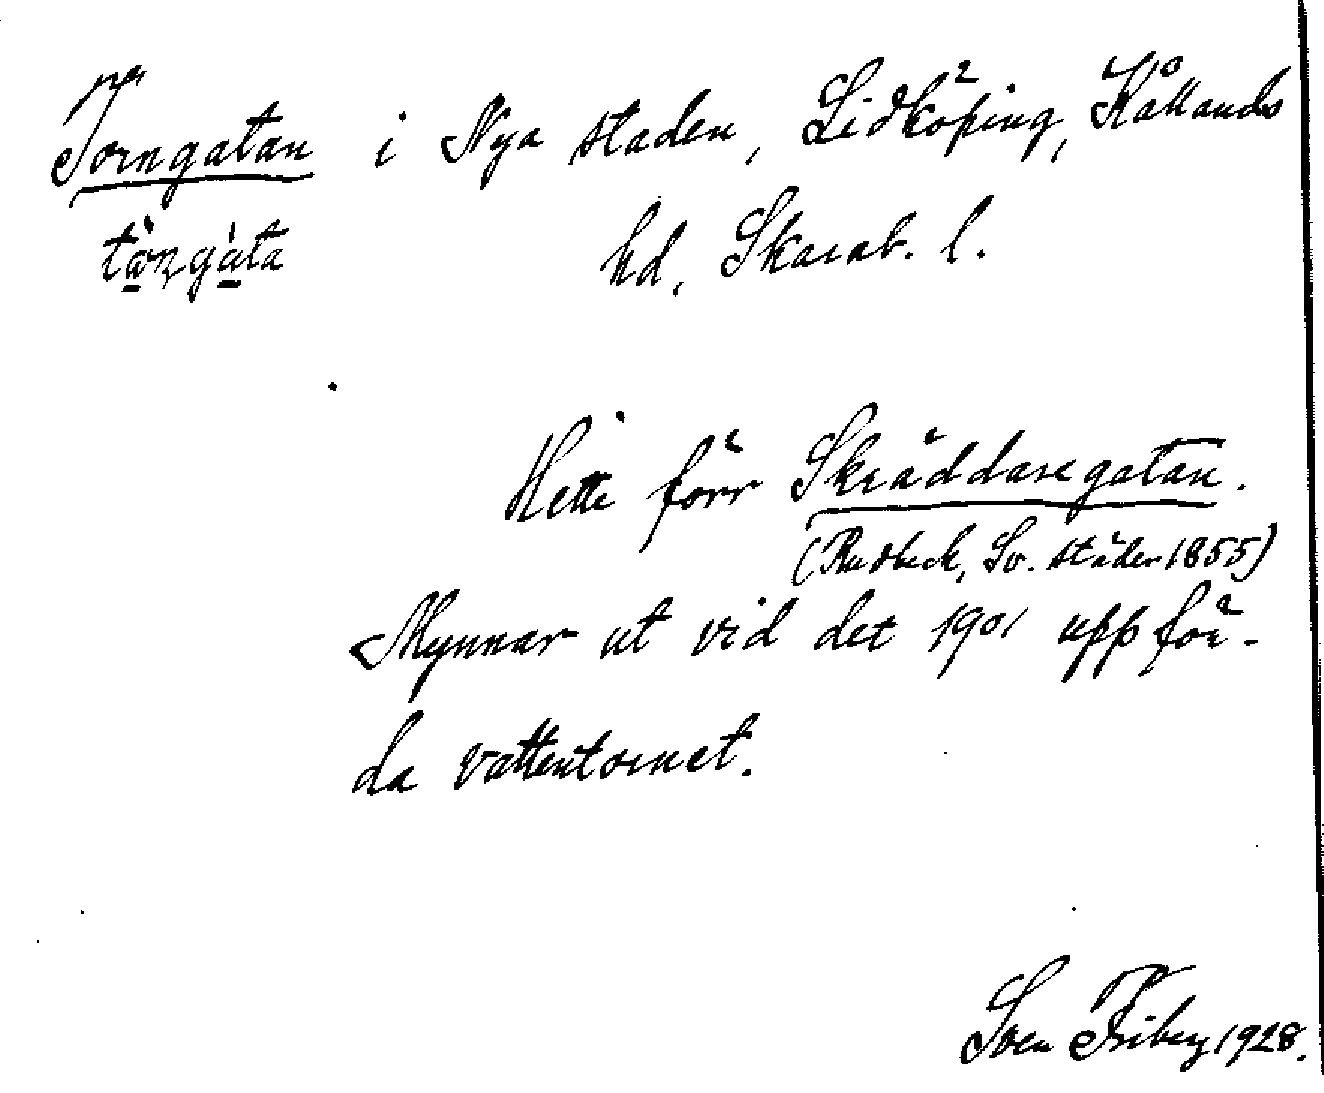 Torngatan i Nya staden, Lidköping, Kållands
hd, Skarab. l.
Hette förr Skräddaregatan.
(Rudbeck, Sv. städer 1855)
Mynnar ut vid det 1901 uppför-
da vattentornet.
Sven Friberg 1928.